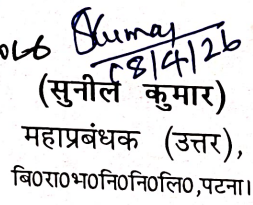 SKumar
18/4/26
(सुनील कुमार)
महाप्रबंधक (उत्तर),
बि0रा0भ0नि0नि0लि0,पटना।